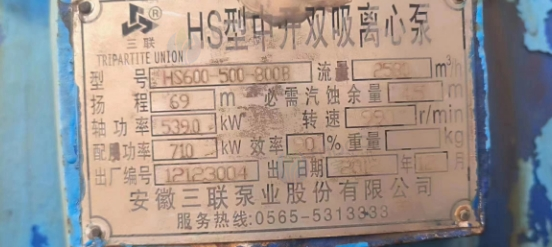 三联
TRIPARTITE UNION
HS型中开双吸离心泵
型号 HS600-500-800B 流量 m³/h
扬程 69 m 必需汽蚀余量 m
轴功率 539.0 kW 转速 r/min
配套功率 710 kW 效率 90 % 重量 kg
出厂编号 12123004 出厂日期 201 年 月
安徽三联泵业股份有限公司
服务热线:0565-5313333